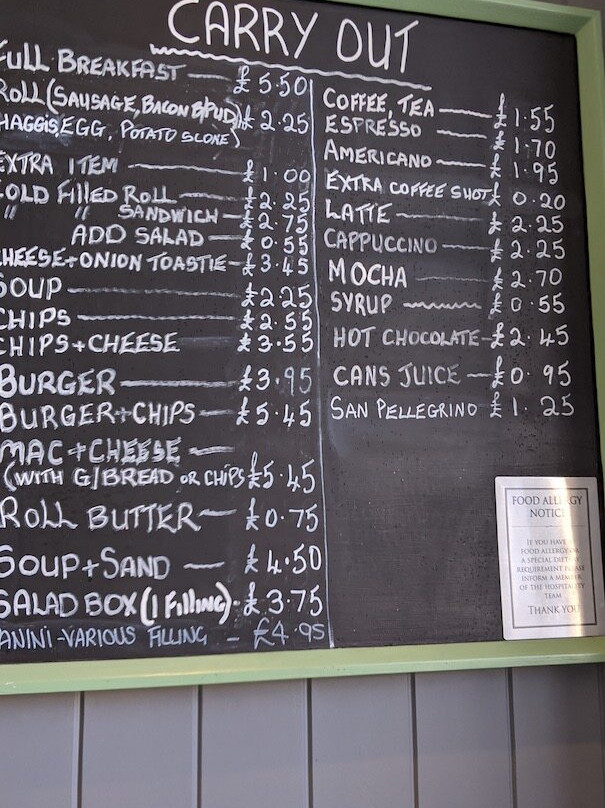 CARRY OUT
FULL BREAKFAST — £5.50
ROLL (SAUSAGE, BACON B/PUD) £2.25
HAGGIS, EGG, POTATO SCONE)
EXTRA ITEM — £1.00
COLD FILLED ROLL — £2.25
" " SANDWICH — £2.75
ADD SALAD — £0.55
CHEESE+ONION TOASTIE — £3.45
SOUP — £2.25
CHIPS — £2.55
CHIPS+CHEESE £3.55
BURGER — £3.95
BURGER+CHIPS — £5.45
MAC+CHEESE —
(WITH G/BREAD OR CHIPS £5.45
ROLL BUTTER — £0.75
SOUP+SAND — £4.50
SALAD BOX (1 Filling) - £3.75
PANINI-VARIOUS FILLING - £4.95
COFFEE, TEA — £1.55
ESPRESSO — £1.70
AMERICANO — £1.95
EXTRA COFFEE SHOT £0.20
LATTE — £2.25
CAPPUCCINO — £2.25
MOCHA — £2.70
SYRUP — £0.55
HOT CHOCOLATE - £2.45
CANS JUICE — £0.95
SAN PELLEGRINO £1.25
FOOD ALLERGY
NOTICE
IF YOU HAVE A
FOOD ALLERGY OR
A SPECIAL DIETARY
REQUIREMENT PLEASE
INFORM A MEMBER
OF THE HOSPITALITY
TEAM
THANK YOU